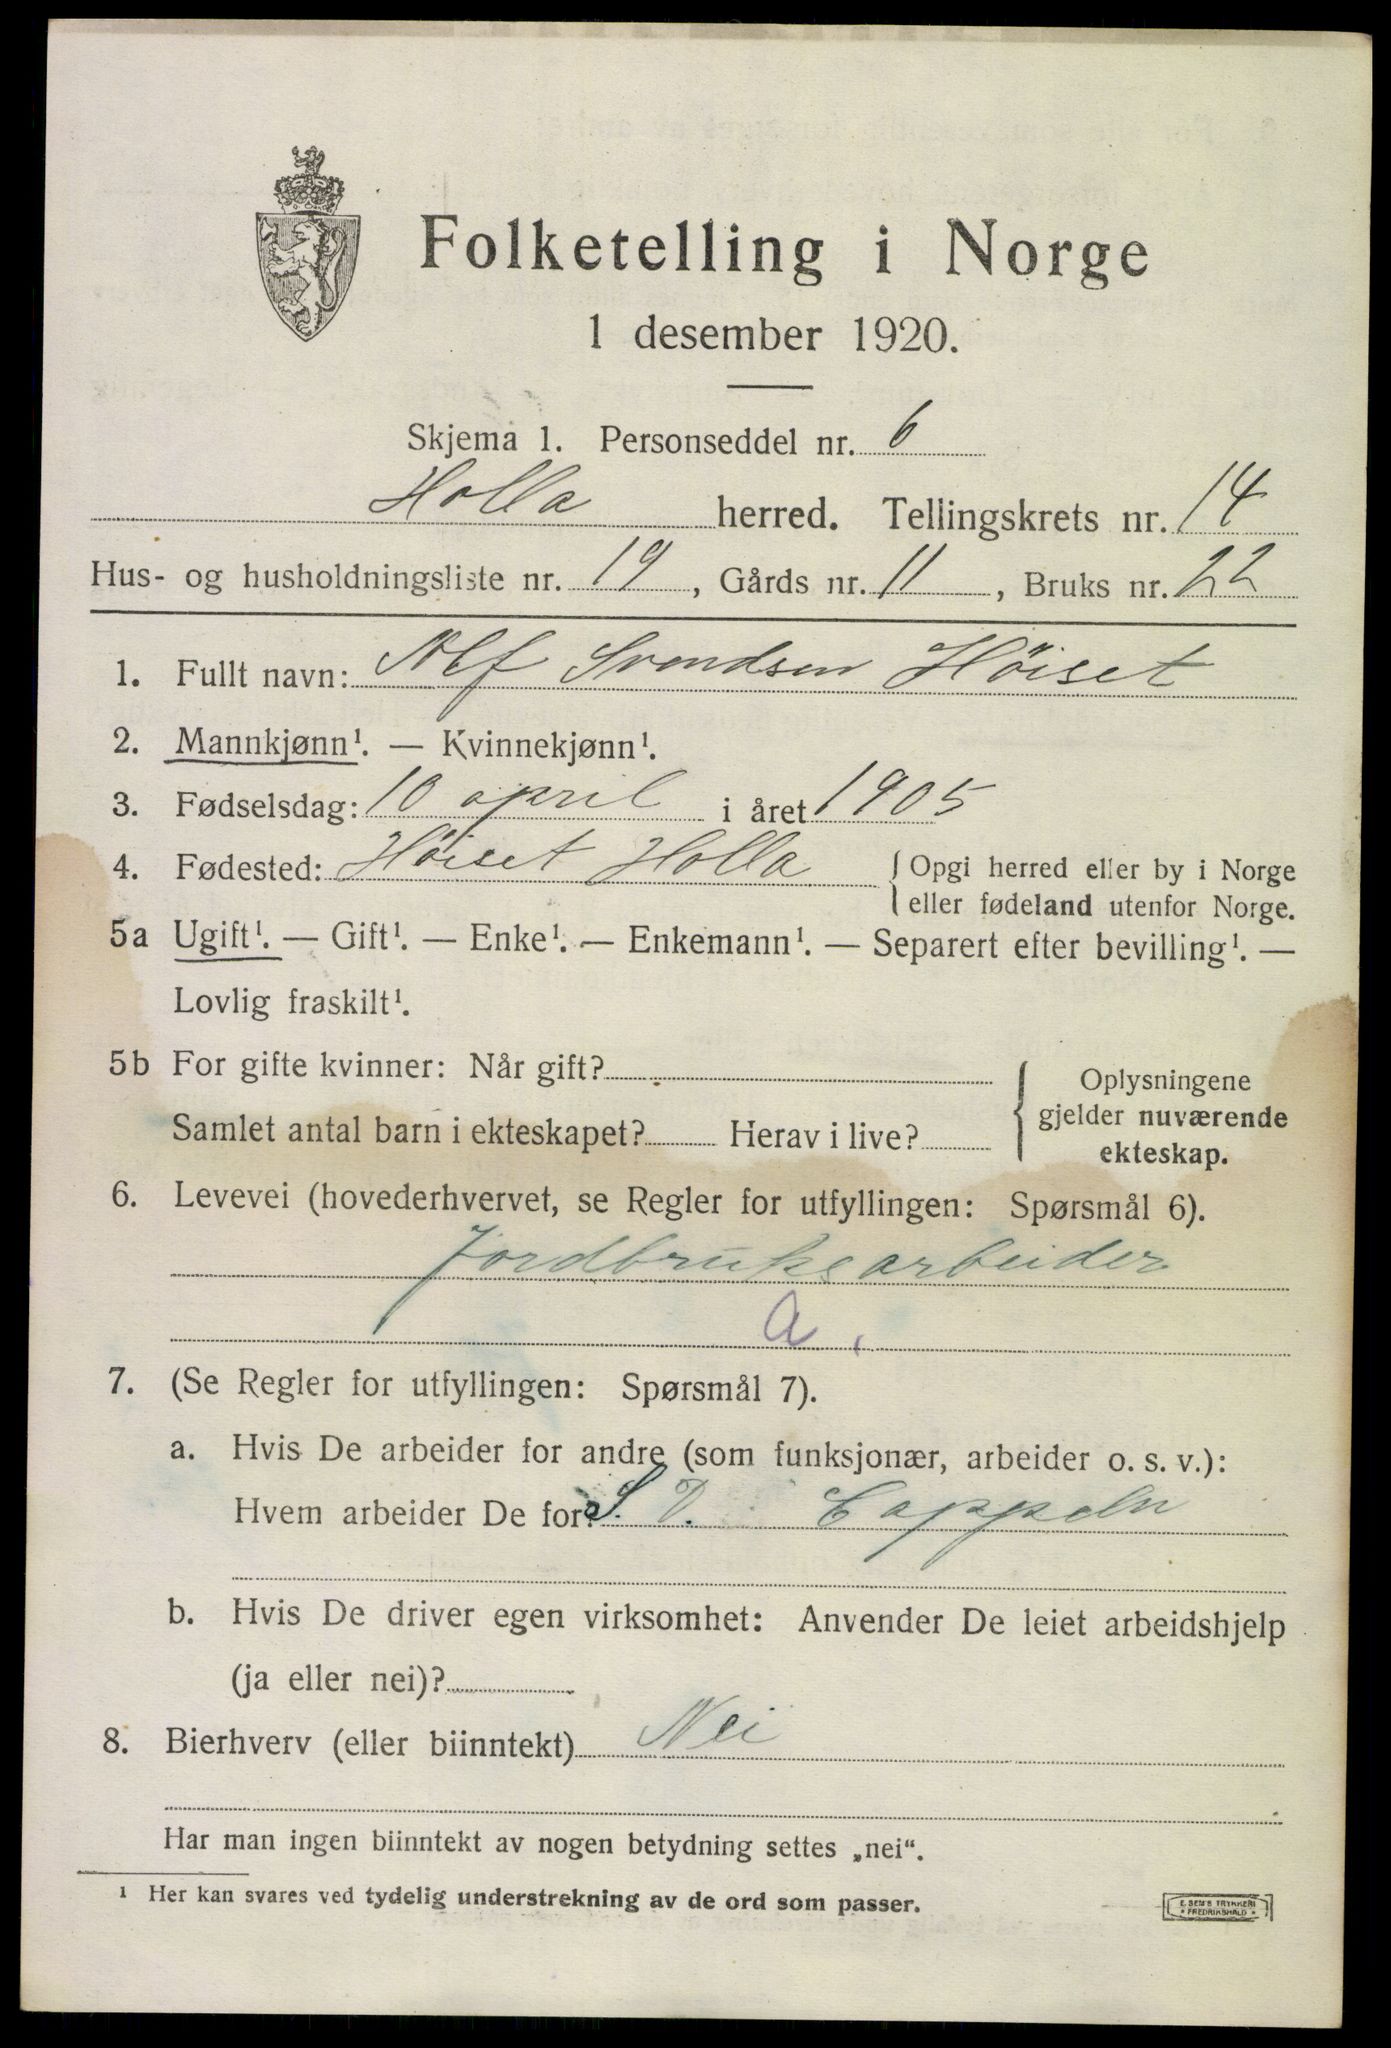 Folketelling i Norge
1 desember 1920.
Skjema 1. Personseddel nr. 6
Holla herred. Tellingskrets nr. 14
Hus- og husholdningsliste nr. 19, Gårds nr. 11, Bruks nr. 22
1. Fullt navn: Alf Svendsen Höiset
2. Mannkjønn¹. — Kvinnekjønn¹.
3. Fødselsdag: 10 april i året 1905
4. Fødested: Höiset Holla { Opgi herred eller by i Norge
eller fødeland utenfor Norge.
5a Ugift¹. — Gift¹. — Enke¹. — Enkemann¹. — Separert efter bevilling¹. —
Lovlig fraskilt¹.
5b For gifte kvinner: Når gift?
Samlet antal barn i ekteskapet? Herav i live?
{ Oplysningene
gjelder nuværende
ekteskap.
6. Levevei (hovederhvervet, se Regler for utfyllingen: Spørsmål 6).
Jordbruksarbeider
a.
7. (Se Regler for utfyllingen: Spørsmål 7).
a. Hvis De arbeider for andre (som funksjonær, arbeider o. s. v.):
Hvem arbeider De for? S. D. Cappeln
b. Hvis De driver egen virksomhet: Anvender De leiet arbeidshjelp
(ja eller nei)?
8. Bierhverv (eller biinntekt) Nei
Har man ingen biinntekt av nogen betydning settes „nei“.
¹ Her kan svares ved tydelig understrekning av de ord som passer.
E. SEM'S TRYKKERI
* FREDRIKSHALD *